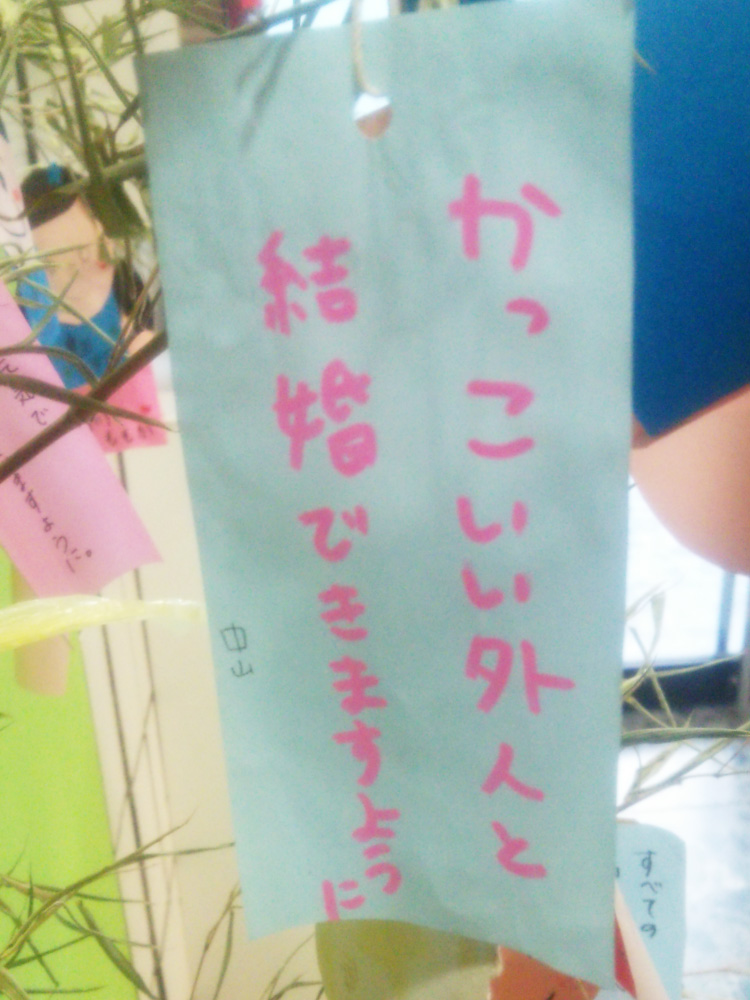 かっこいい外人と
結婚できますように
中山
すべての
ますように。